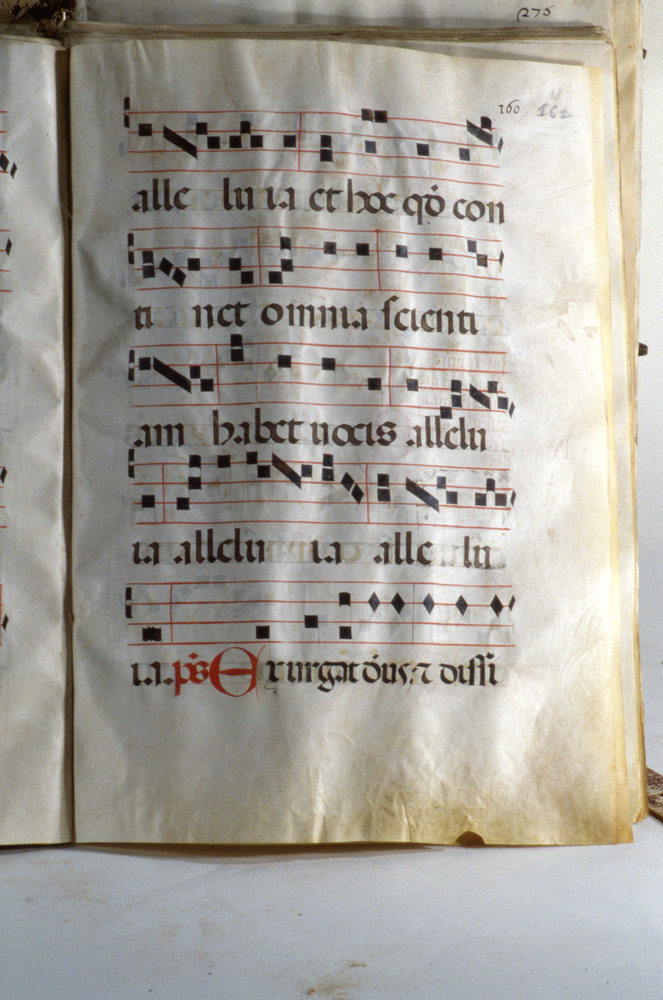 275
160 161
alle lu ia et hoc qđ con
ti net omnia scienti
am habet uocis allelu
ia allelu ia alle lu
ia. ps Exurgat dūs: ⁊ dissi